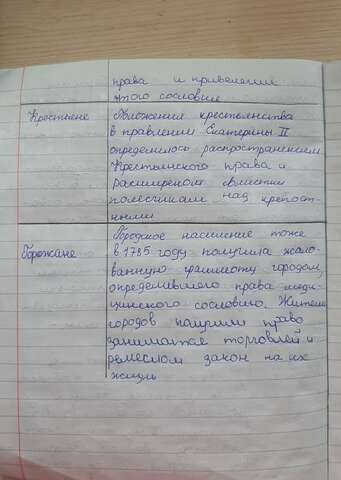 права и привелегии
этого сословия
Крестьяне
Положения крестьянства
в правлении Екатерины II
определялось распространением
Крестьянского права и
расширением власти
помещикам над крепост-
ными
Горожане
Городское население тоже
в 1785 году получила жало-
ванную грамоту городом,
определившего права меди-
цинского сословия. Жители
городов получили право
заниматся торговлей и
ремеслом закон на их
жизнь